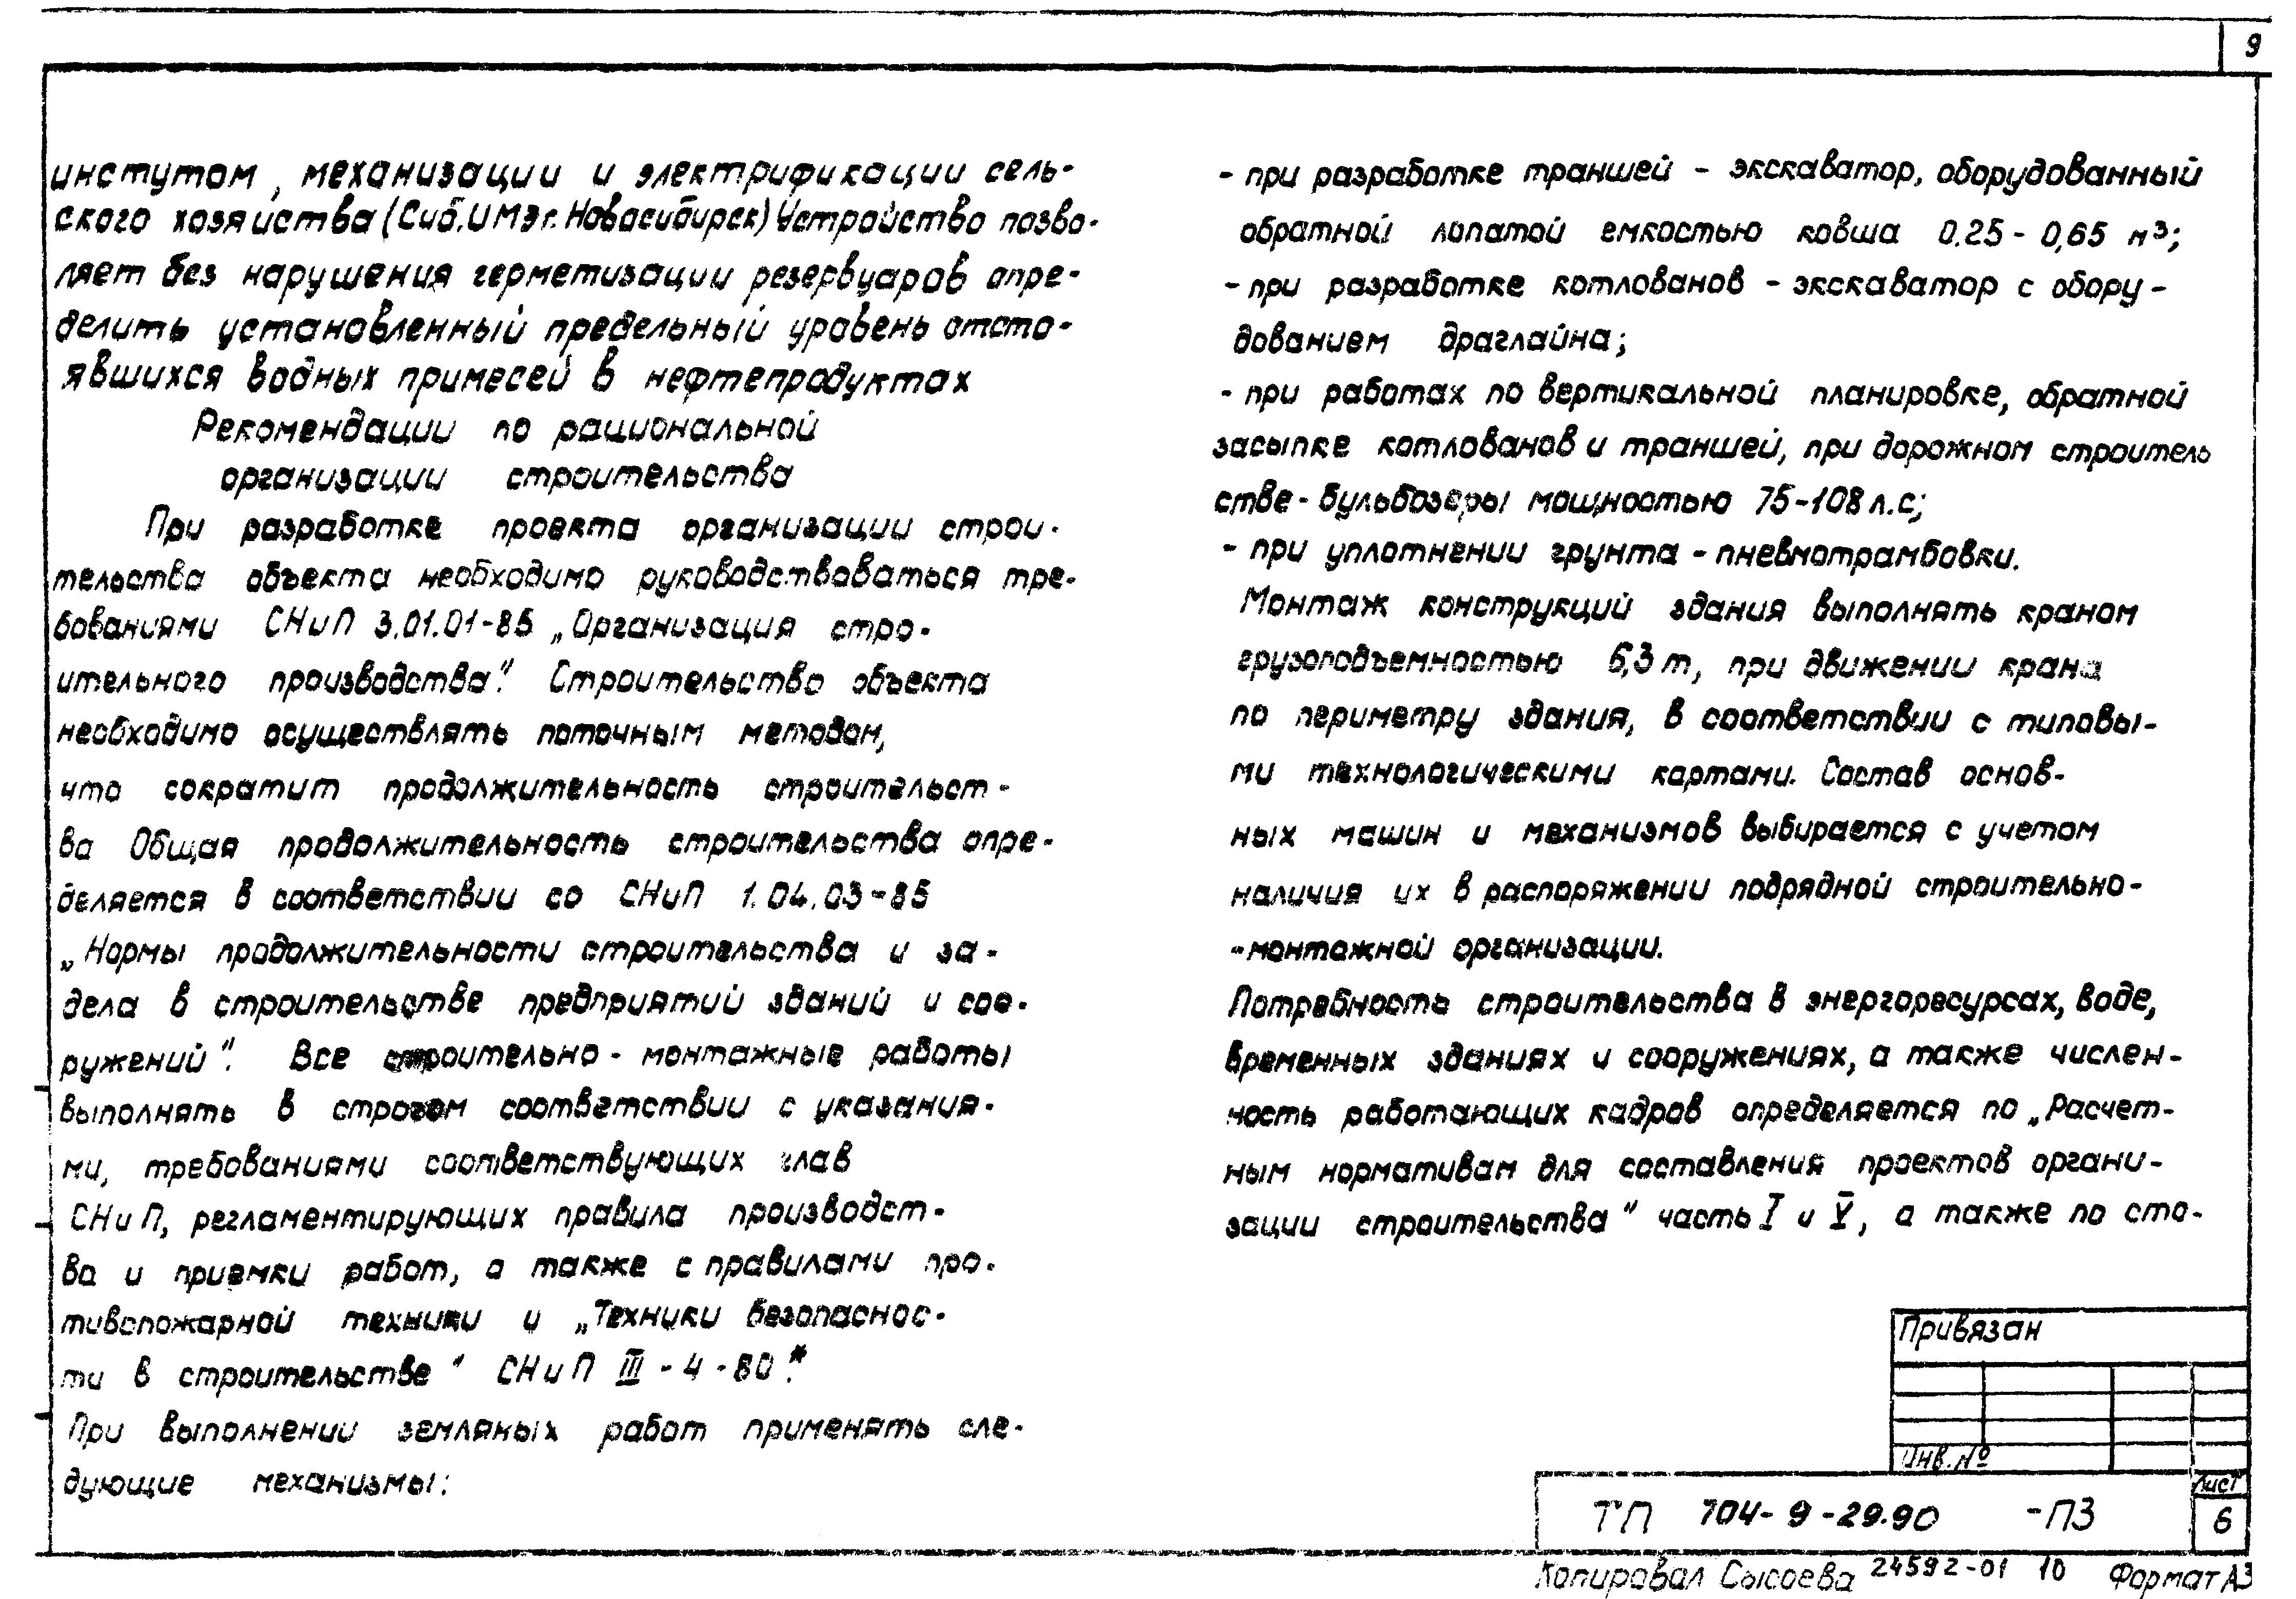 9
инстутом, механизации и электрификации сель-
ского хозяйства (Сиб.ИМЭ г. Новосибирск) Устройство позво-
ляет без нарушения герметизации резервуаров опре-
делить установленный предельный уровень отсто-
явшихся водных примесей в нефтепродуктах
Рекомендации по рациональной
организации строительства
При разработке проекта организации строи-
тельства объекта необходимо руководствоваться тре-
бованиями СНиП 3.01.01-85 „Организация стро-
ительного производства". Строительство объекта
необходимо осуществлять поточным методом,
что сократит продолжительность строительст-
ва Общая продолжительность строительства опре-
деляется в соответствии со СНиП 1.04.03-85
„Нормы продолжительности строительства и за-
дела в строительстве предприятий зданий и соо-
ружений". Все строительно-монтажные работы
выполнять в строгом соответствии с указания-
ми, требованиями соответствующих глав
СНиП, регламентирующих правила производст-
ва и приемки работ, а также с правилами про-
тивопожарной техники и „Техники безопаснос-
ти в строительстве" СНиП III-4-80*.
При выполнении земляных работ применять сле-
дующие механизмы:
- при разработке траншей - экскаватор, оборудованный
обратной лопатой емкостью ковша 0.25 - 0,65 м³;
- при разработке котлованов - экскаватор с обору-
дованием драглайна;
- при работах по вертикальной планировке, обратной
засыпке котлованов и траншей, при дорожном строитель
стве - бульбозеры мощностью 75-108 л.с;
- при уплотнении грунта - пневмотрамбовки.
Монтаж конструкций здания выполнять краном
грузоподъемностью 6,3 т, при движении крана
по периметру здания, в соответствии с типовы-
ми технологическими картами. Состав основ-
ных машин и механизмов выбирается с учетом
наличия их в распоряжении подрядной строительно-
-монтажной организации.
Потребность строительства в энергоресурсах, воде,
временных зданиях и сооружениях, а также числен-
ность работающих кадров определяется по „Расчет-
ным нормативам для составления проектов органи-
зации строительства" часть I и V, а также по сто-
Привязан
Инв. №
ТП 704-9-29.90 -ПЗ
Лист
6
Копировал Сысоева 24592-01 10 Формат А3